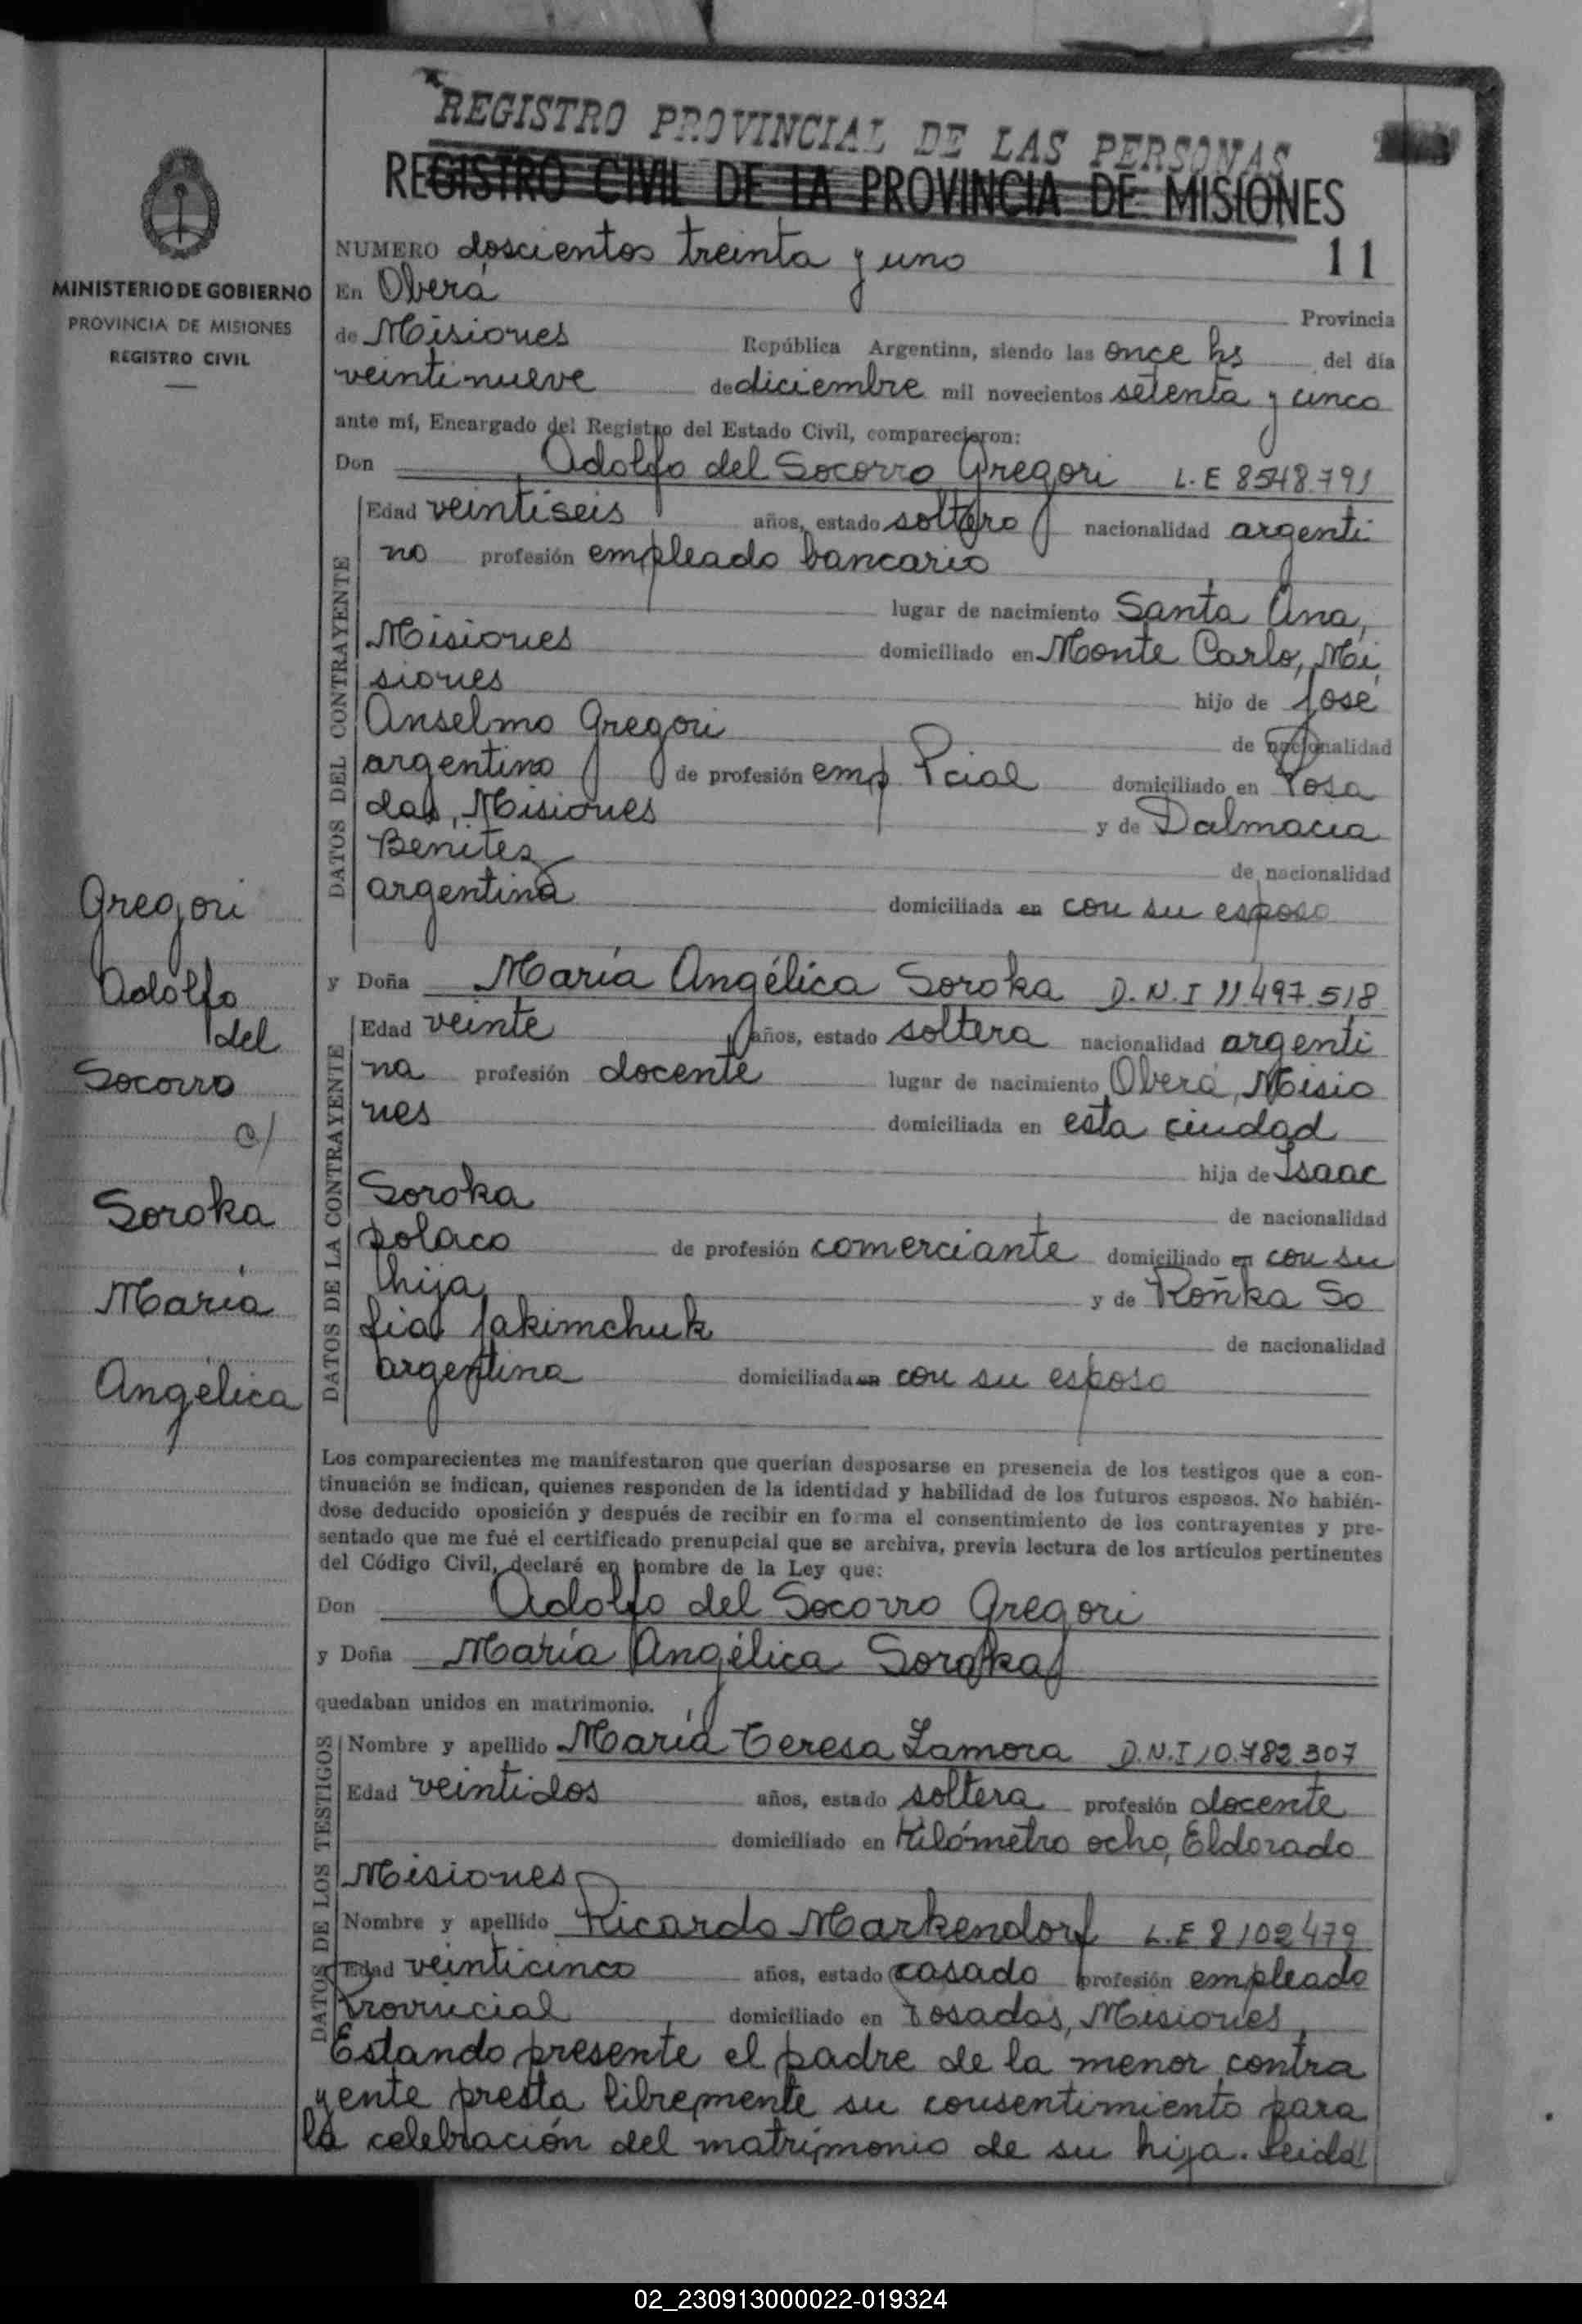 REGISTRO PROVINCIAL DE LAS PERSONAS
REGISTRO CIVIL DE LA PROVINCIA DE MISIONES
MINISTERIO DE GOBIERNO
PROVINCIA DE MISIONES
REGISTRO CIVIL
NUMERO doscientos treinta y uno 11
En Oberá Provincia
de Misiones República Argentina, siendo las once hs del día
veintinueve de diciembre mil novecientos setenta y cinco
ante mí, Encargado del Registro del Estado Civil, comparecieron:
Don Adolfo del Socorro Gregori L.E 8548.791
DATOS DEL CONTRAYENTE
Edad veintiseis años, estado soltero nacionalidad argenti
no profesión empleado bancario
lugar de nacimiento Santa Ana,
Misiones domiciliado en Monte Carlo, Mi
siones hijo de José
Anselmo Gregori de nacionalidad
argentino de profesión emp Pcial domiciliado en Posa
das, Misiones y de Dalmacia
Benitez de nacionalidad
argentina domiciliada en con su esposo
Gregori
Adolfo
del
Socorro
c/
Soroka
María
Angélica
y Doña María Angélica Soroka D.N.I 11.497.518
DATOS DE LA CONTRAYENTE
Edad veinte años, estado soltera nacionalidad argenti
na profesión docente lugar de nacimiento Oberá, Misio
nes domiciliada en esta ciudad
hija de Isaac
Soroka de nacionalidad
polaco de profesión comerciante domiciliado en con su
hija y de Roñka So
fia Jakimchuk de nacionalidad
argentina domiciliada en con su esposo
Los comparecientes me manifestaron que querían desposarse en presencia de los testigos que a con-
tinuación se indican, quienes responden de la identidad y habilidad de los futuros esposos. No habién-
dose deducido oposición y después de recibir en forma el consentimiento de los contrayentes y pre-
sentado que me fué el certificado prenupcial que se archiva, previa lectura de los artículos pertinentes
del Código Civil, declaré en nombre de la Ley que:
Don Adolfo del Socorro Gregori
y Doña María Angélica Soroka
quedaban unidos en matrimonio.
DATOS DE LOS TESTIGOS
Nombre y apellido María Teresa Zamora D.N.I 10.782.307
Edad veintidos años, estado soltera profesión docente
domiciliado en Kilómetro ocho, Eldorado
Misiones
Nombre y apellido Ricardo Markendorf L.E 8102479
Edad veinticinco años, estado casado profesión empleado
Provincial domiciliado en Posadas, Misiones
Estando presente el padre de la menor contra
yente presta libremente su consentimiento para
la celebración del matrimonio de su hija. Leida
02_230913000022-019324